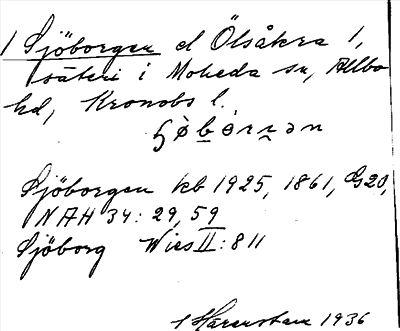 1 Sjöborgen el Ölsåkra 1,
säteri i Moheda sn, Allbo
hd, Kronobs l.
Sjöborgen kb 1925, 1861, G20,
NAH 34: 29, 59
Sjöborg Wies II: 811
1936